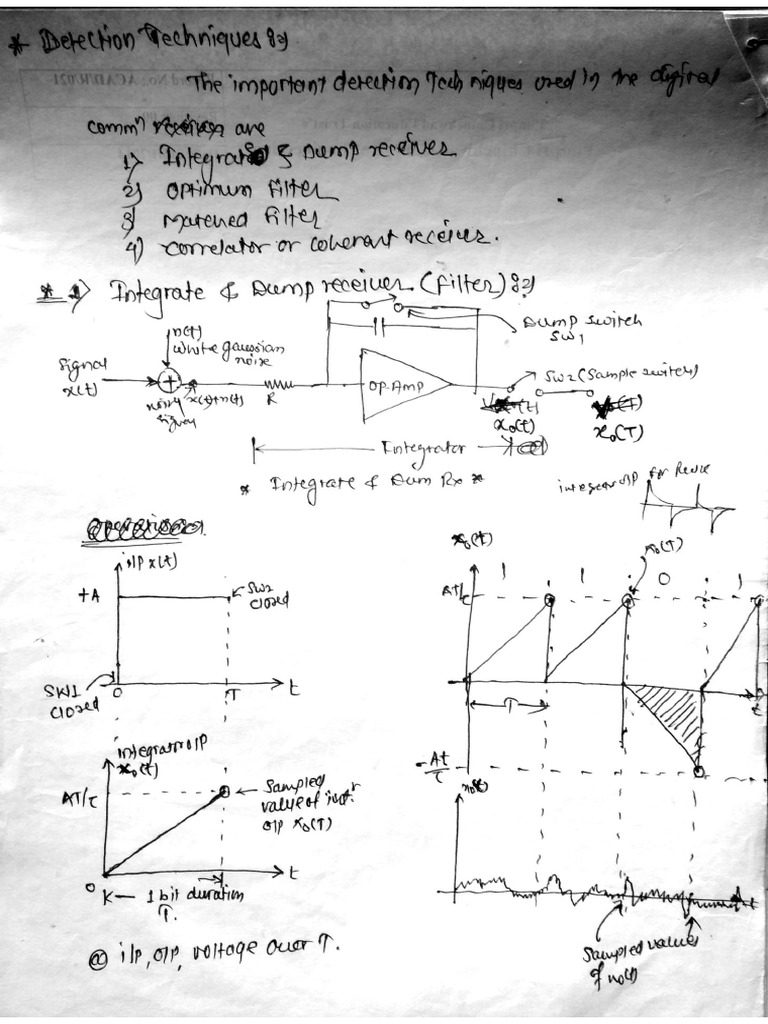 * Detection Techniques :-
The important detection Techniques used in the digital
commn receivers are
1) Integrate & Dump receiver
2) Optimum filter
3) Matched filter
4) correlator or coherent receiver.
* 1) Integrate & Dump receiver (filter) :-
n(t)
white gaussian
noise
Signal
x(t)
+
noisy
signal
x(t)+n(t)
R
OP-AMP
Dump switch
SW1
SW2 (Sample switch)
x₀(t)
x₀(T)
Integrator
* Integrate & Dum Rx *
i/p x(t)
+A
SW2
closed
SW1
closed
0
T
t
Integrator o/p
x₀(t)
AT/τ
Sampled
value of intr
o/p x₀(T)
0
t
K— 1 bit duration
T.
@ i/p, o/p, voltage over T.
x₀(t)
x₀(T)
AT/τ
1 1 0 1
T
t
-At/τ
n₀(t)
Sampled values
of n₀(t)